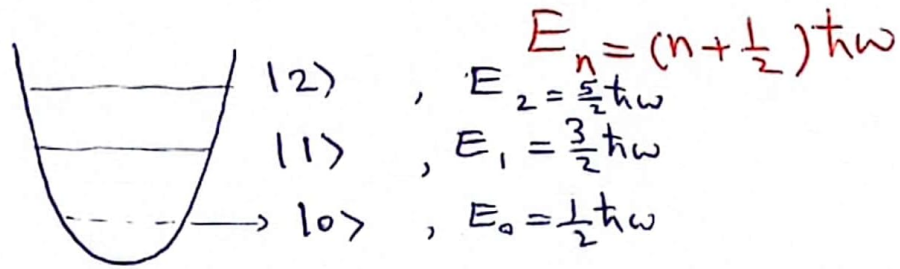 Eₙ = (n + 1/2) ħω
|2⟩ , E₂ = 5/2 ħω
|1⟩ , E₁ = 3/2 ħω
|0⟩ , E₀ = 1/2 ħω